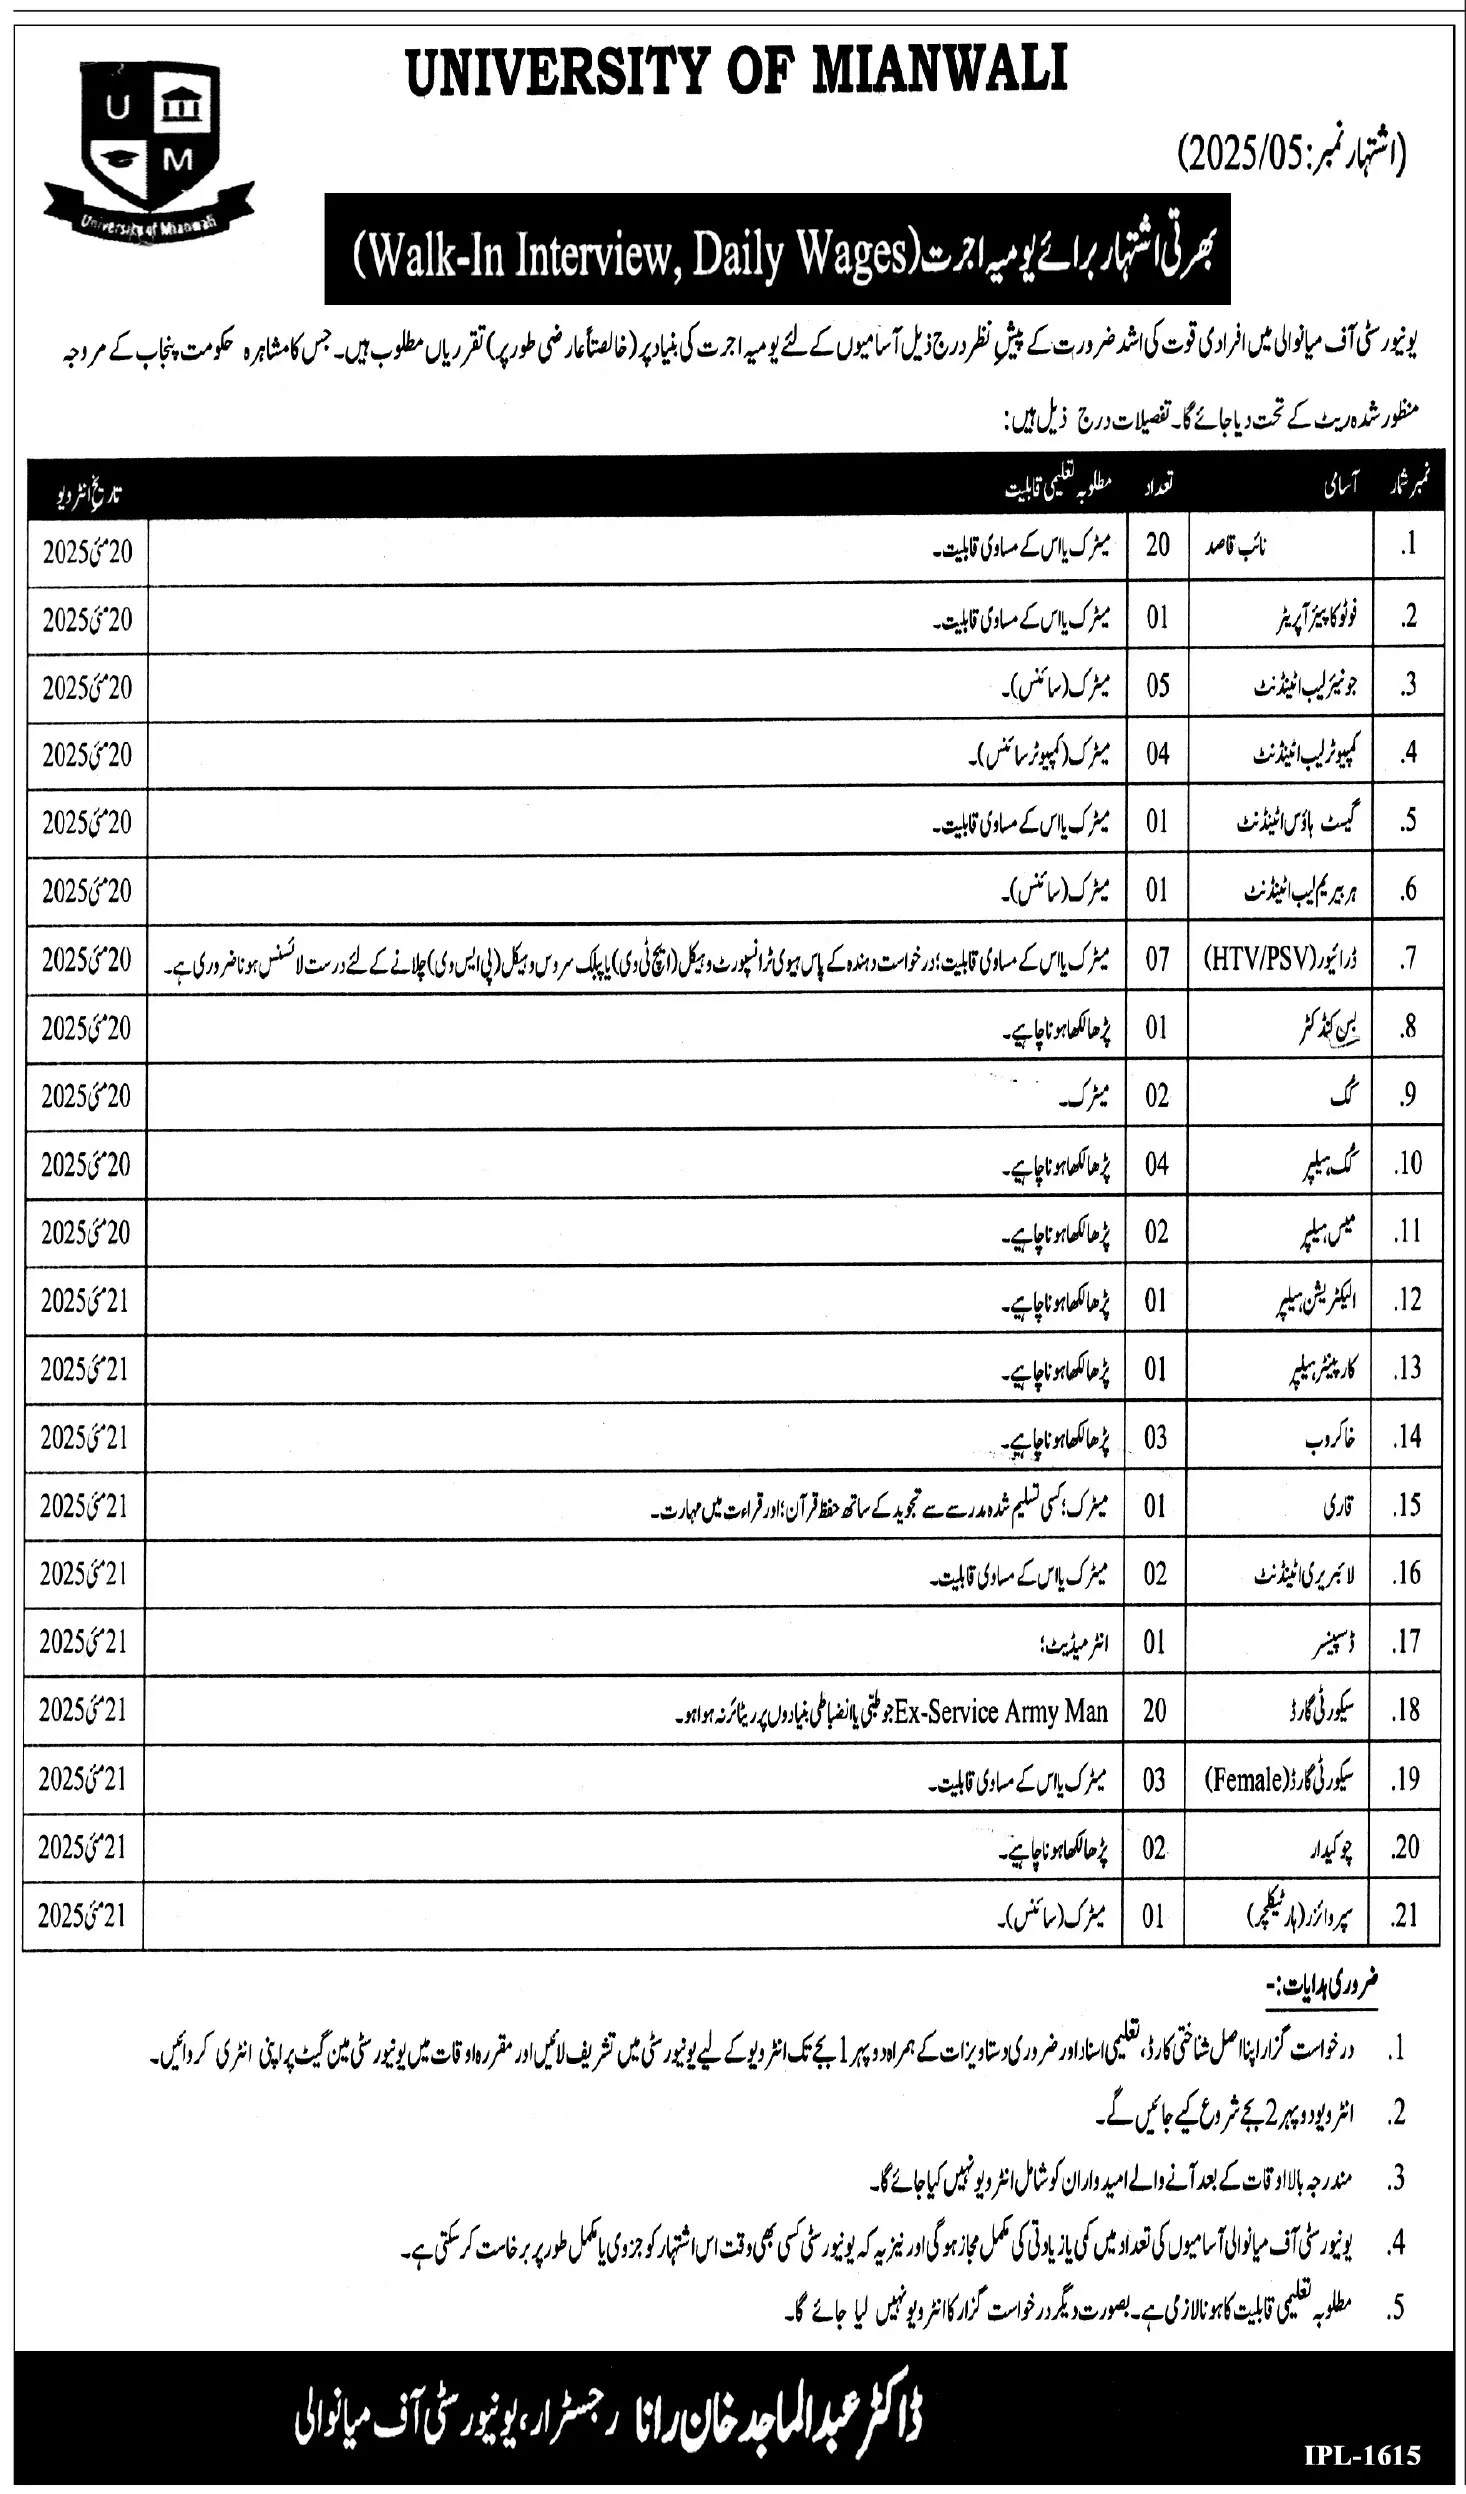 UNIVERSITY OF MIANWALI
U
M
University of Mianwali
(اشتہار نمبر: 2025/05)
بھرتی اشتہار برائے یومیہ اجرت (Walk-In Interview, Daily Wages)
یونیورسٹی آف میانوالی میں افرادی قوت کی اشد ضرورت کے پیش نظر درج ذیل آسامیوں کے لئے یومیہ اجرت کی بنیاد پر (خالصتاً عارضی طور پر) تقرریاں مطلوب ہیں۔ جس کا مشاہرہ حکومت پنجاب کے مروجہ
منظور شدہ ریٹ کے تحت دیا جائے گا۔ تفصیلات درج ذیل ہیں:
نمبر شمار آسامی تعداد مطلوبہ تعلیمی قابلیت تاریخ انٹرویو
1. نائب قاصد 20 میٹرک یا اس کے مساوی قابلیت۔ 20 مئی 2025
2. فوٹو کاپیئر آپریٹر 01 میٹرک یا اس کے مساوی قابلیت۔ 20 مئی 2025
3. جونیئر لیب اٹینڈنٹ 05 میٹرک (سائنس)۔ 20 مئی 2025
4. کمپیوٹر لیب اٹینڈنٹ 04 میٹرک (کمپیوٹر سائنس)۔ 20 مئی 2025
5. گیسٹ ہاؤس اٹینڈنٹ 01 میٹرک یا اس کے مساوی قابلیت۔ 20 مئی 2025
6. ہربیریم لیب اٹینڈنٹ 01 میٹرک (سائنس)۔ 20 مئی 2025
7. ڈرائیور (HTV/PSV) 07 میٹرک یا اس کے مساوی قابلیت؛ درخواست دہندہ کے پاس ہیوی ٹرانسپورٹ وہیکل (ایچ ٹی وی) یا پبلک سروس وہیکل (پی ایس وی) چلانے کے لئے درست لائسنس ہونا ضروری ہے۔ 20 مئی 2025
8. بس کنڈکٹر 01 پڑھا لکھا ہونا چاہیے۔ 20 مئی 2025
9. کُک 02 میٹرک۔ 20 مئی 2025
10. کُک ہیلپر 04 پڑھا لکھا ہونا چاہیے۔ 20 مئی 2025
11. میس ہیلپر 02 پڑھا لکھا ہونا چاہیے۔ 20 مئی 2025
12. الیکٹریشن ہیلپر 01 پڑھا لکھا ہونا چاہیے۔ 21 مئی 2025
13. کارپینٹر ہیلپر 01 پڑھا لکھا ہونا چاہیے۔ 21 مئی 2025
14. خاکروب 03 پڑھا لکھا ہونا چاہیے۔ 21 مئی 2025
15. قاری 01 میٹرک؛ کسی تسلیم شدہ مدرسے سے تجوید کے ساتھ حفظ قرآن؛ اور قراءت میں مہارت۔ 21 مئی 2025
16. لائبریری اٹینڈنٹ 02 میٹرک یا اس کے مساوی قابلیت۔ 21 مئی 2025
17. ڈسپنسر 01 انٹرمیڈیٹ؛ 21 مئی 2025
18. سیکورٹی گارڈ 20 Ex-Service Army Man جو طبّی یا انضباطی بنیادوں پر ریٹائر نہ ہوا ہو۔ 21 مئی 2025
19. سیکورٹی گارڈ (Female) 03 میٹرک یا اس کے مساوی قابلیت۔ 21 مئی 2025
20. چوکیدار 02 پڑھا لکھا ہونا چاہیے۔ 21 مئی 2025
21. سپروائزر (ہارٹیکلچر) 01 میٹرک (سائنس)۔ 21 مئی 2025
ضروری ہدایات:-
1. درخواست گزار اپنا اصل شناختی کارڈ، تعلیمی اسناد اور ضروری دستاویزات کے ہمراہ دوپہر 1 بجے تک انٹرویو کے لیے یونیورسٹی میں تشریف لائیں اور مقررہ اوقات میں یونیورسٹی مین گیٹ پر اپنی انٹری کروائیں۔
2. انٹرویو دوپہر 2 بجے شروع کیے جائیں گے۔
3. مندرجہ بالا اوقات کے بعد آنے والے امیدواران کو شامل انٹرویو نہیں کیا جائے گا۔
4. یونیورسٹی آف میانوالی آسامیوں کی تعداد میں کمی یا زیادتی کی مکمل مجاز ہوگی اور نیز یہ کہ یونیورسٹی کسی بھی وقت اس اشتہار کو جزوی یا مکمل طور پر برخاست کر سکتی ہے۔
5. مطلوبہ تعلیمی قابلیت کا ہونا لازمی ہے۔ بصورت دیگر درخواست گزار کا انٹرویو نہیں لیا جائے گا۔
ڈاکٹر عبدالماجد خان رانا رجسٹرار، یونیورسٹی آف میانوالی
IPL-1615